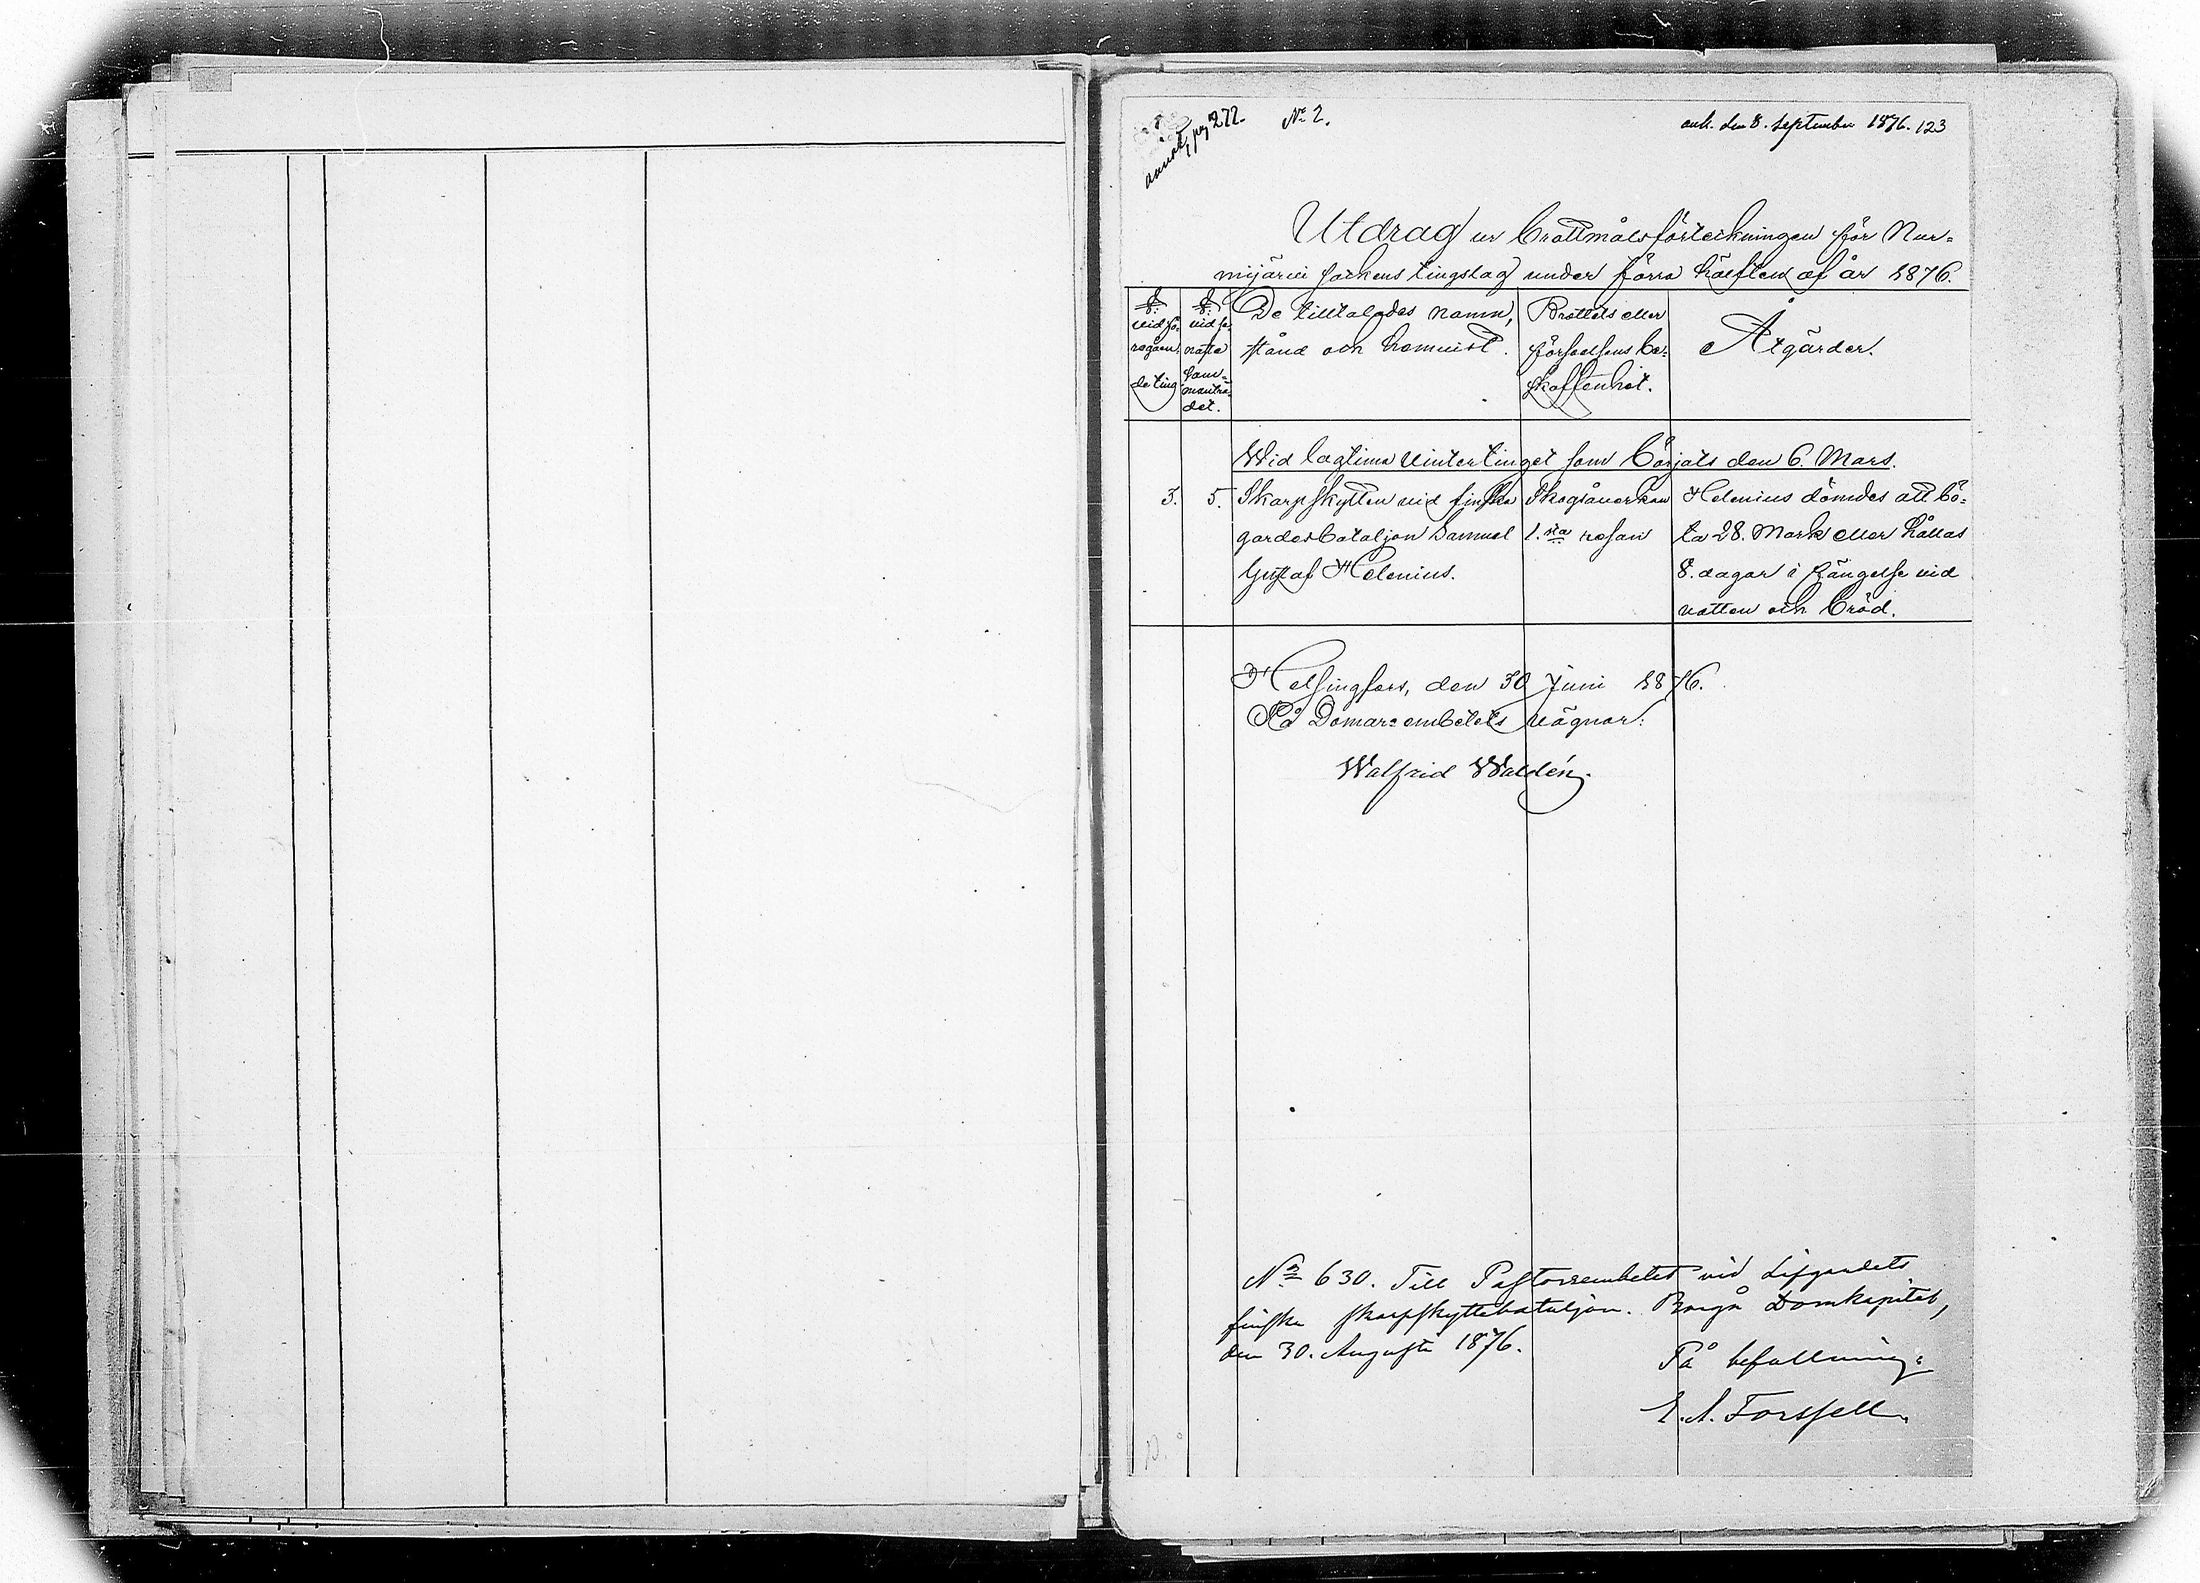 pag 272.
N:o 2.
ank. den 8. September 1876. 123
Utdrag ur brottmålsförteckningen för Nur=
mijärvi sockens tingslag under förra hälften af år 1876.
§. vid fö- regåen- de ting
§. vid se- naste sam- manträ- det.
De tilltalades namn, stånd och hemvist.
Brottets eller förseelsens be- skaffenhet.
Åtgärder.
Wid lagtima vintertinget som börjats den 6. Mars.
3. 5. Skarpskytten vid finska Skogsåverkan Helenius dömdes att bö=
gardesbataljon Samuel 1.sta resan ta 28. Mark eller hållas
Gustaf Helenius. 8. dagar i fängelse vid
vatten och bröd.
Helsingfors, den 30 Juni 1876.
På Domare embetets vägnar:
Walfrid Waldén.
N:o 630. Till Pastorsembetet vid Lifgardets
finska skarpskyttebataljon. Borgå Domkapitel,
den 30. Augusti 1876.
På befallning:
E. A. Forssell.